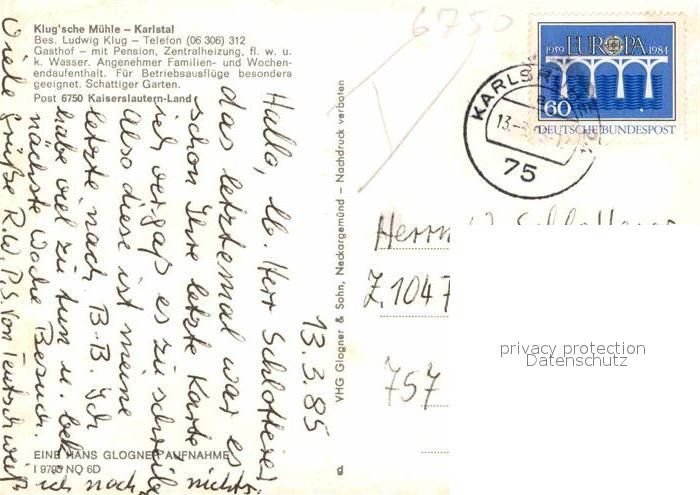 Klug'sche Mühle – Karlstal
Bes. Ludwig Klug – Telefon (06 306) 312
Gasthof – mit Pension, Zentralheizung, fl. w. u.
k. Wasser. Angenehmer Familien- und Wochen-
endaufenthalt. Für Betriebsausflüge besonders
geeignet. Schattiger Garten.
Post 6750 Kaiserslautern-Land
13.3.85
Hallo, lb. Herr Schlotterer
das letztemal war es
schon Ihre letzte Karte
ich vergaß es zu schreib
Also diese ist meine
letzte nach B.-B. Ich
habe viel zu tun u. bek
nächste Woche Besuch.
Viele Grüße R.W. P.S. von Teutsch weiß
ich noch nichts
EINE HANS GLOGNER AUFNAHME
NQ 6D
VHG Glogner & Sohn, Neckargemünd – Nachdruck verboten
d
6750
1959 EUROPA 1984
60
DEUTSCHE BUNDESPOST
KARLSRUHE
13.-3
75
Herrn
Z.1047
757
privacy protection
Datenschutz